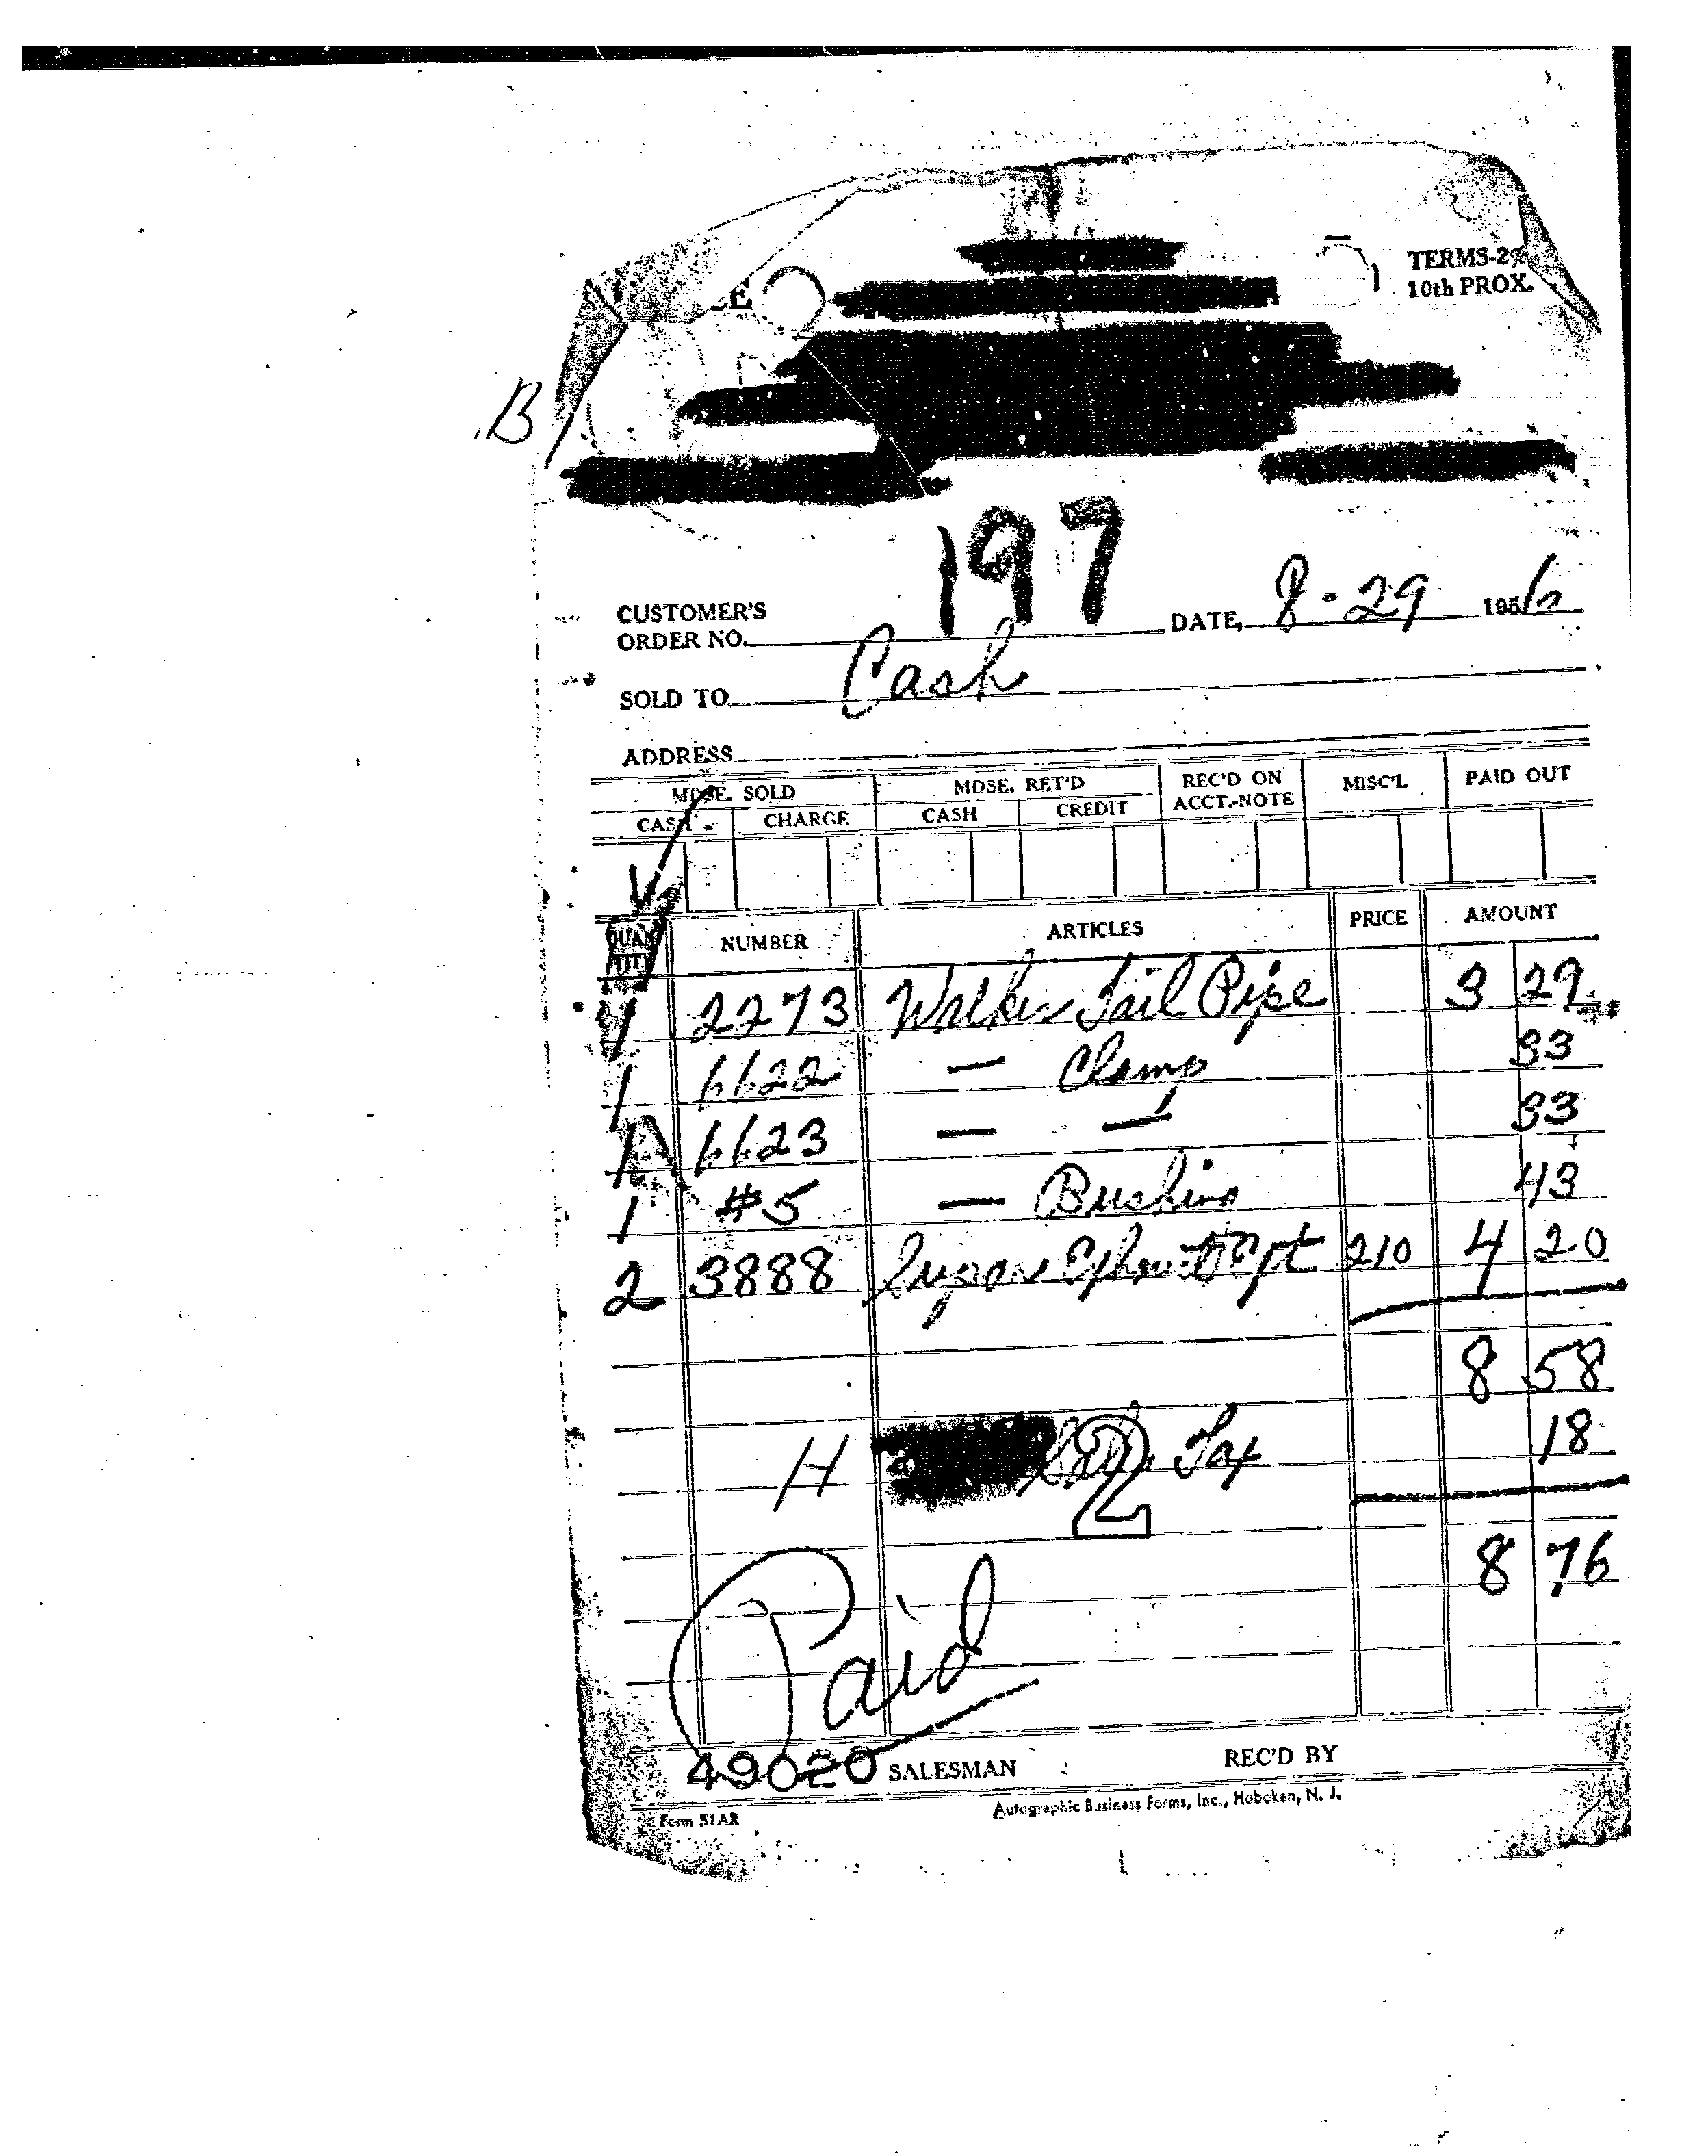 E
TERMS-2%
10th PROX.
B
197
CUSTOMER'S
ORDER NO.
DATE, 8-29 1956
SOLD TO Cash
ADDRESS
MDSE. SOLD MDSE. RET'D REC'D ON ACCT.-NOTE MISC'L PAID OUT
CASH CHARGE CASH CREDIT
QUANTITY NUMBER ARTICLES PRICE AMOUNT
1 2273 Walker Tail Pipe 3 29
1 6622 — Clamp 33
1 6623 — — 33
1 #5 — Bushing 43
2 3888 210 4 20
8 58
H 2 Tax 18
8 76
Paid
49020 SALESMAN REC'D BY
Form 51AR Autographic Business Forms, Inc., Hoboken, N. J.